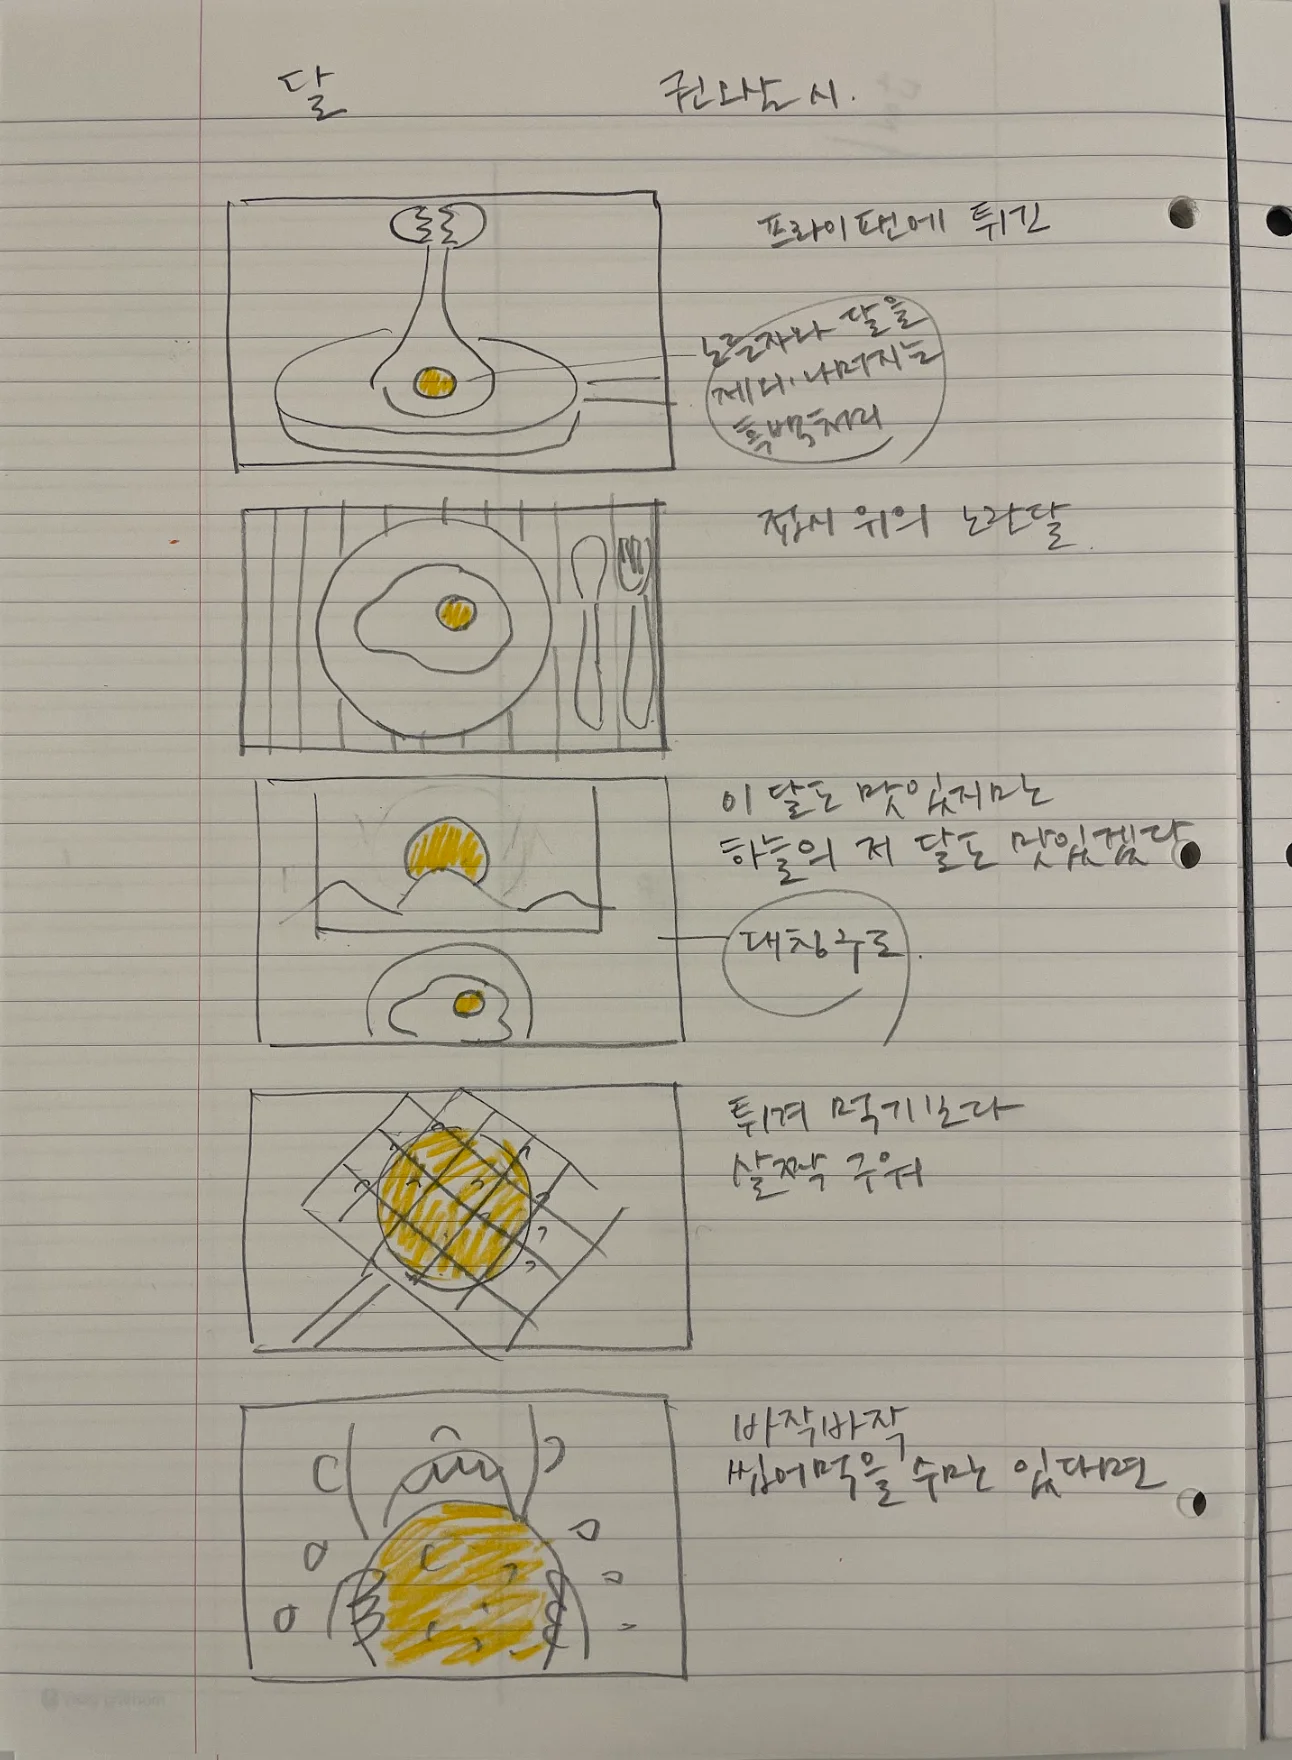 달 권오삼 시.
프라이팬에 튀긴
노른자와 달을
제외. 나머지는
흑백처리
접시 위의 노란달.
이 달도 맛있지만
하늘의 저 달도 맛있겠다
대칭구도.
튀겨 먹기보다
살짝 구워
바작바작
씹어먹을 수만 있다면